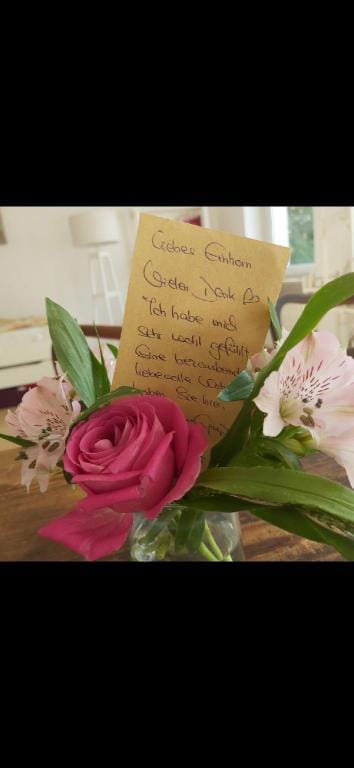 Liebes Einhorn
Vielen Dank ♡
Ich habe mich
sehr wohl gefühlt
Eine bezaubernde
liebevolle
haben Sie hier.